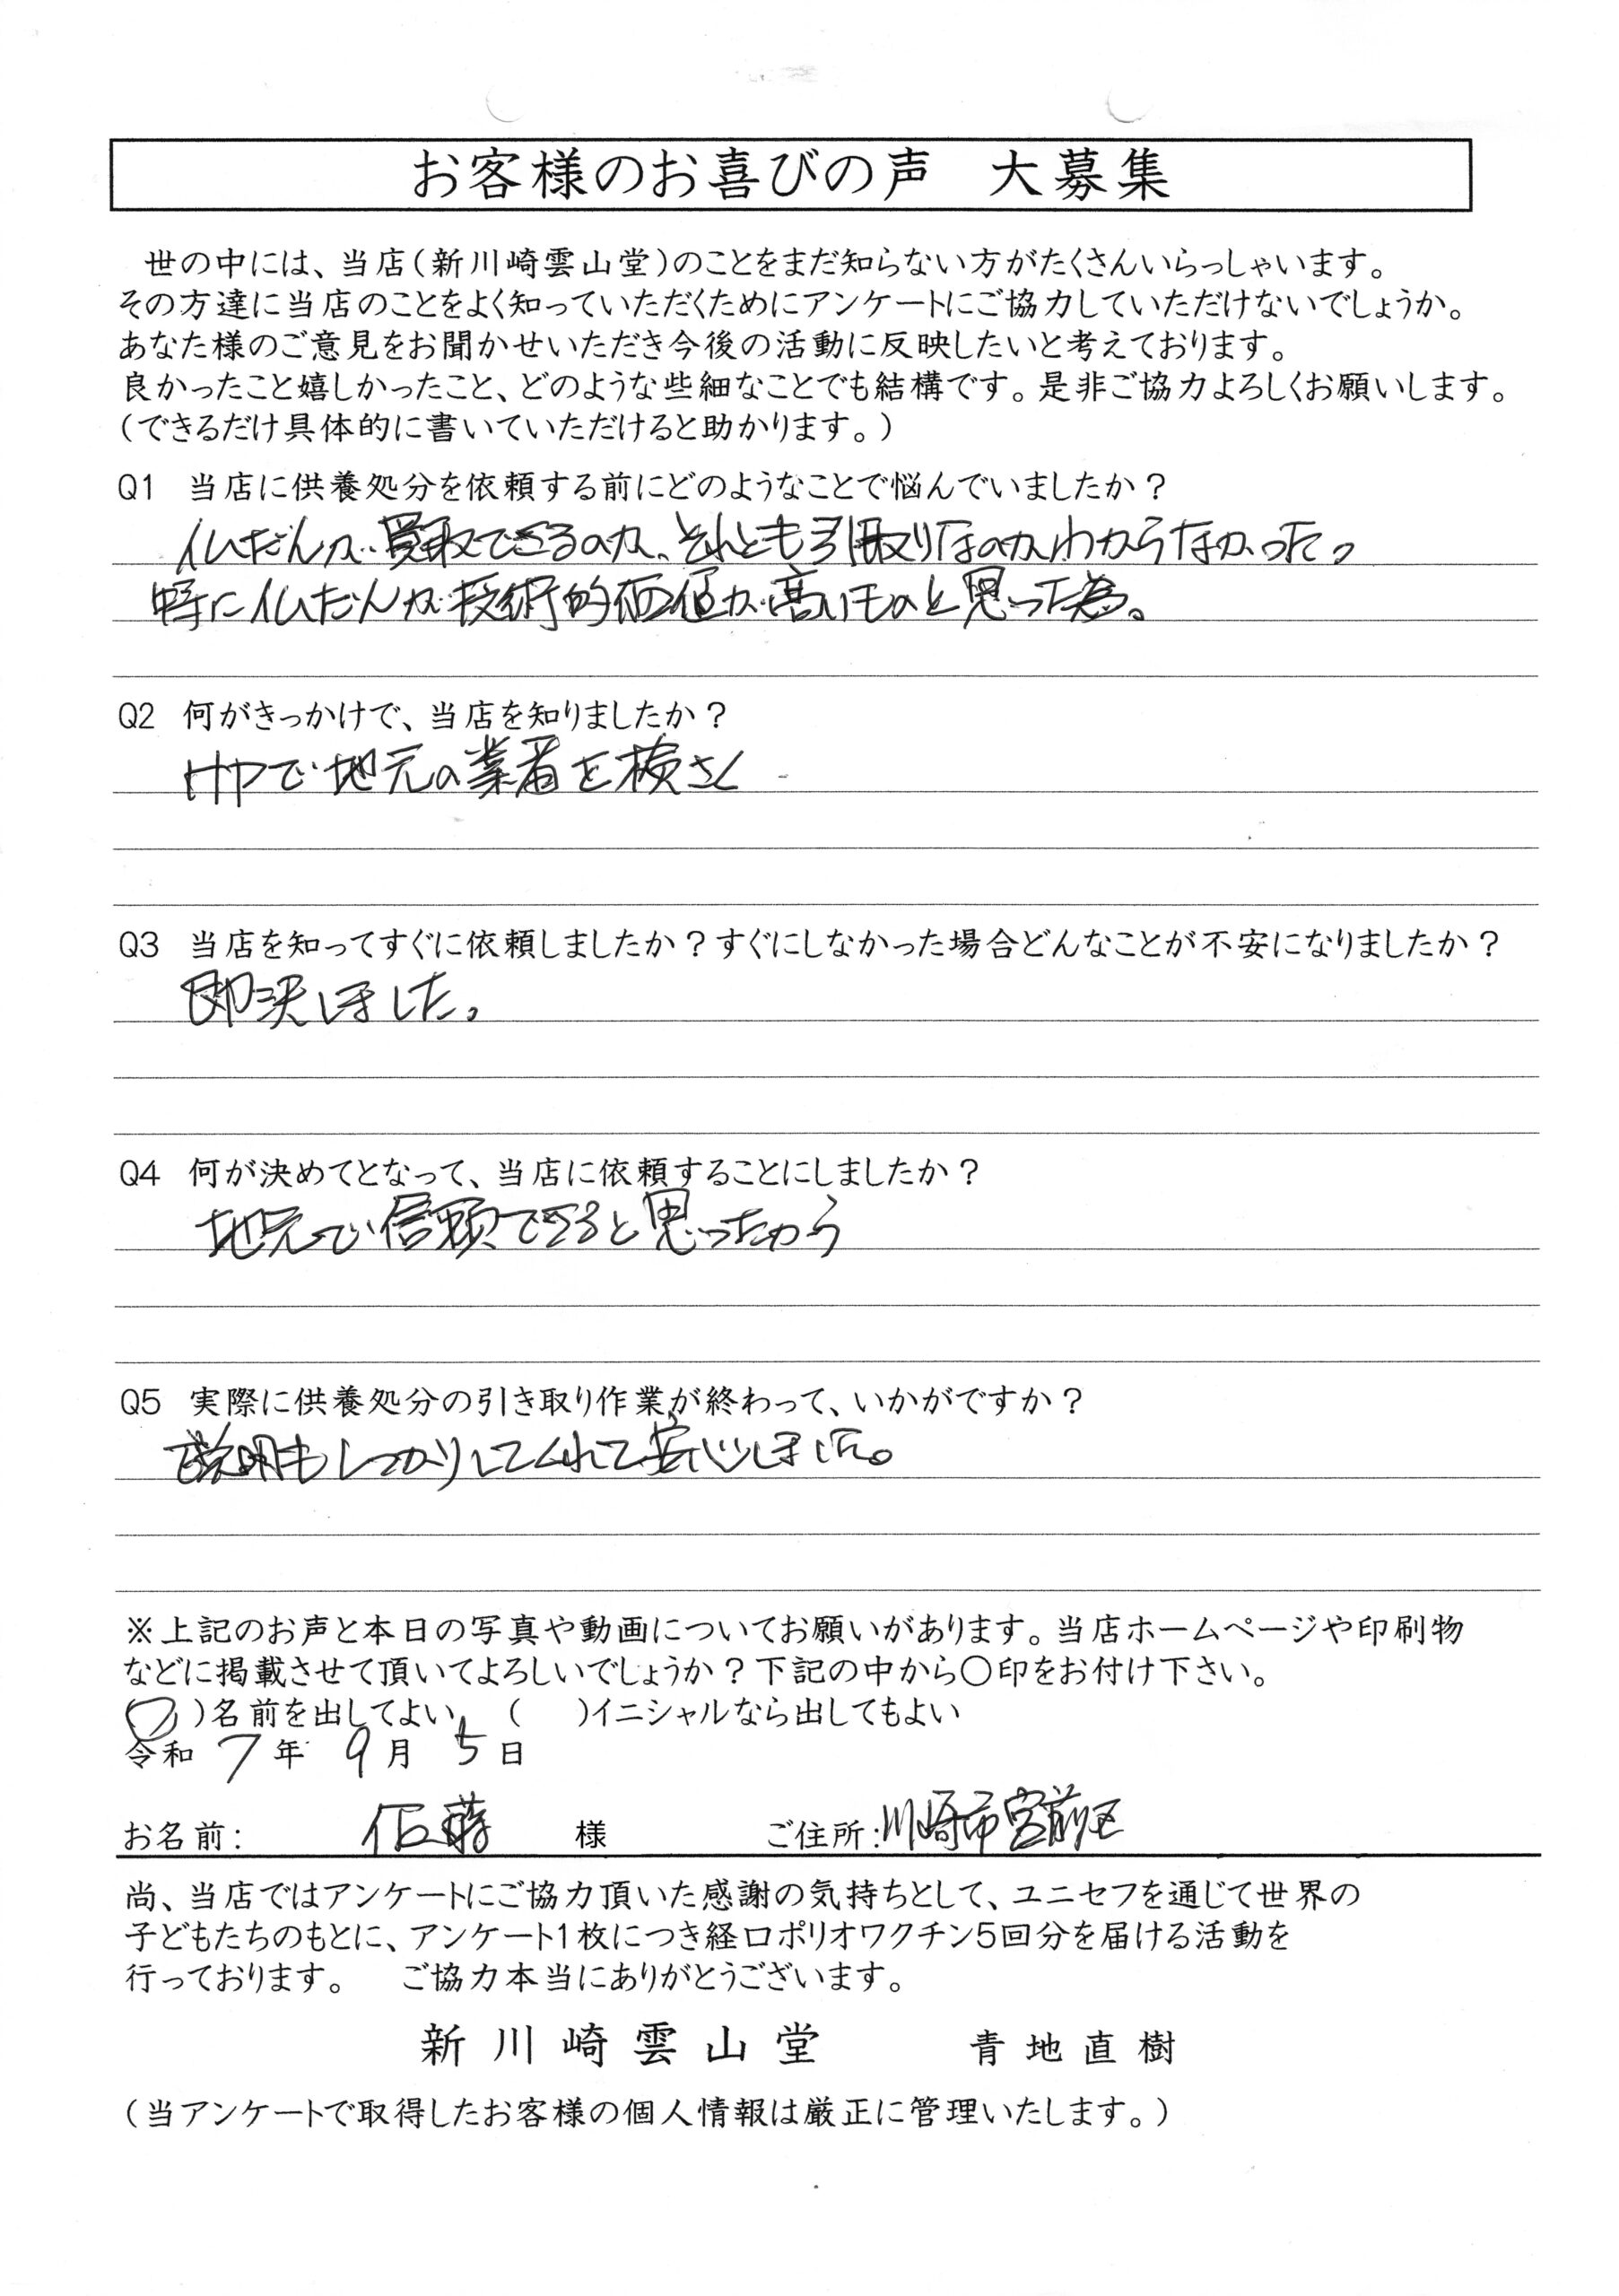 お客様のお喜びの声　大募集
世の中には、当店(新川崎雲山堂)のことをまだ知らない方がたくさんいらっしゃいます。
その方達に当店のことをよく知っていただくためにアンケートにご協力していただけないでしょうか。
あなた様のご意見をお聞かせいただき今後の活動に反映したいと考えております。
良かったこと嬉しかったこと、どのような些細なことでも結構です。是非ご協力よろしくお願いします。
(できるだけ具体的に書いていただけると助かります。)
Q1　当店に供養処分を依頼する前にどのようなことで悩んでいましたか？
仏だんが買取できるのか、それとも引取りなのかわからなかった。
特に仏だんが技術的価値が高いものと思った為。
Q2　何がきっかけで、当店を知りましたか？
HPで地元の業者を検さく
Q3　当店を知ってすぐに依頼しましたか？すぐにしなかった場合どんなことが不安になりましたか？
即決しました。
Q4　何が決めてとなって、当店に依頼することにしましたか？
地元で信頼できると思ったから
Q5　実際に供養処分の引き取り作業が終わって、いかがですか？
説明もしっかりしてくれて安心しました。
※上記のお声と本日の写真や動画についてお願いがあります。当店ホームページや印刷物
などに掲載させて頂いてよろしいでしょうか？下記の中から〇印をお付け下さい。
(〇)名前を出してよい　(　)イニシャルなら出してもよい
令和 7 年 9 月 5 日
お名前：佐藤 様　ご住所：川崎市宮前区
尚、当店ではアンケートにご協力頂いた感謝の気持ちとして、ユニセフを通じて世界の
子どもたちのもとに、アンケート1枚につき経口ポリオワクチン5回分を届ける活動を
行っております。　ご協力本当にありがとうございます。
新川崎雲山堂　青地直樹
(当アンケートで取得したお客様の個人情報は厳正に管理いたします。)